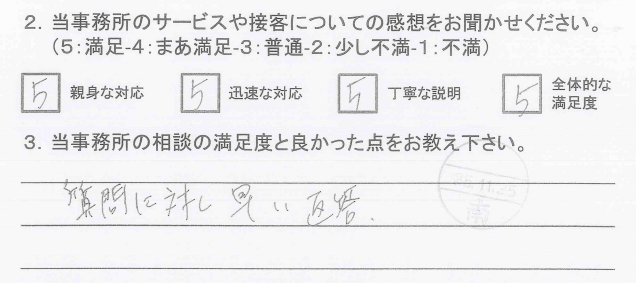 2. 当事務所のサービスや接客についての感想をお聞かせください。
(5:満足-4:まあ満足-3:普通-2:少し不満-1:不満)
5 親身な対応 5 迅速な対応 5 丁寧な説明 5 全体的な
満足度
3. 当事務所の相談の満足度と良かった点をお教え下さい。
質問に対し早い返答.
.11.25
南